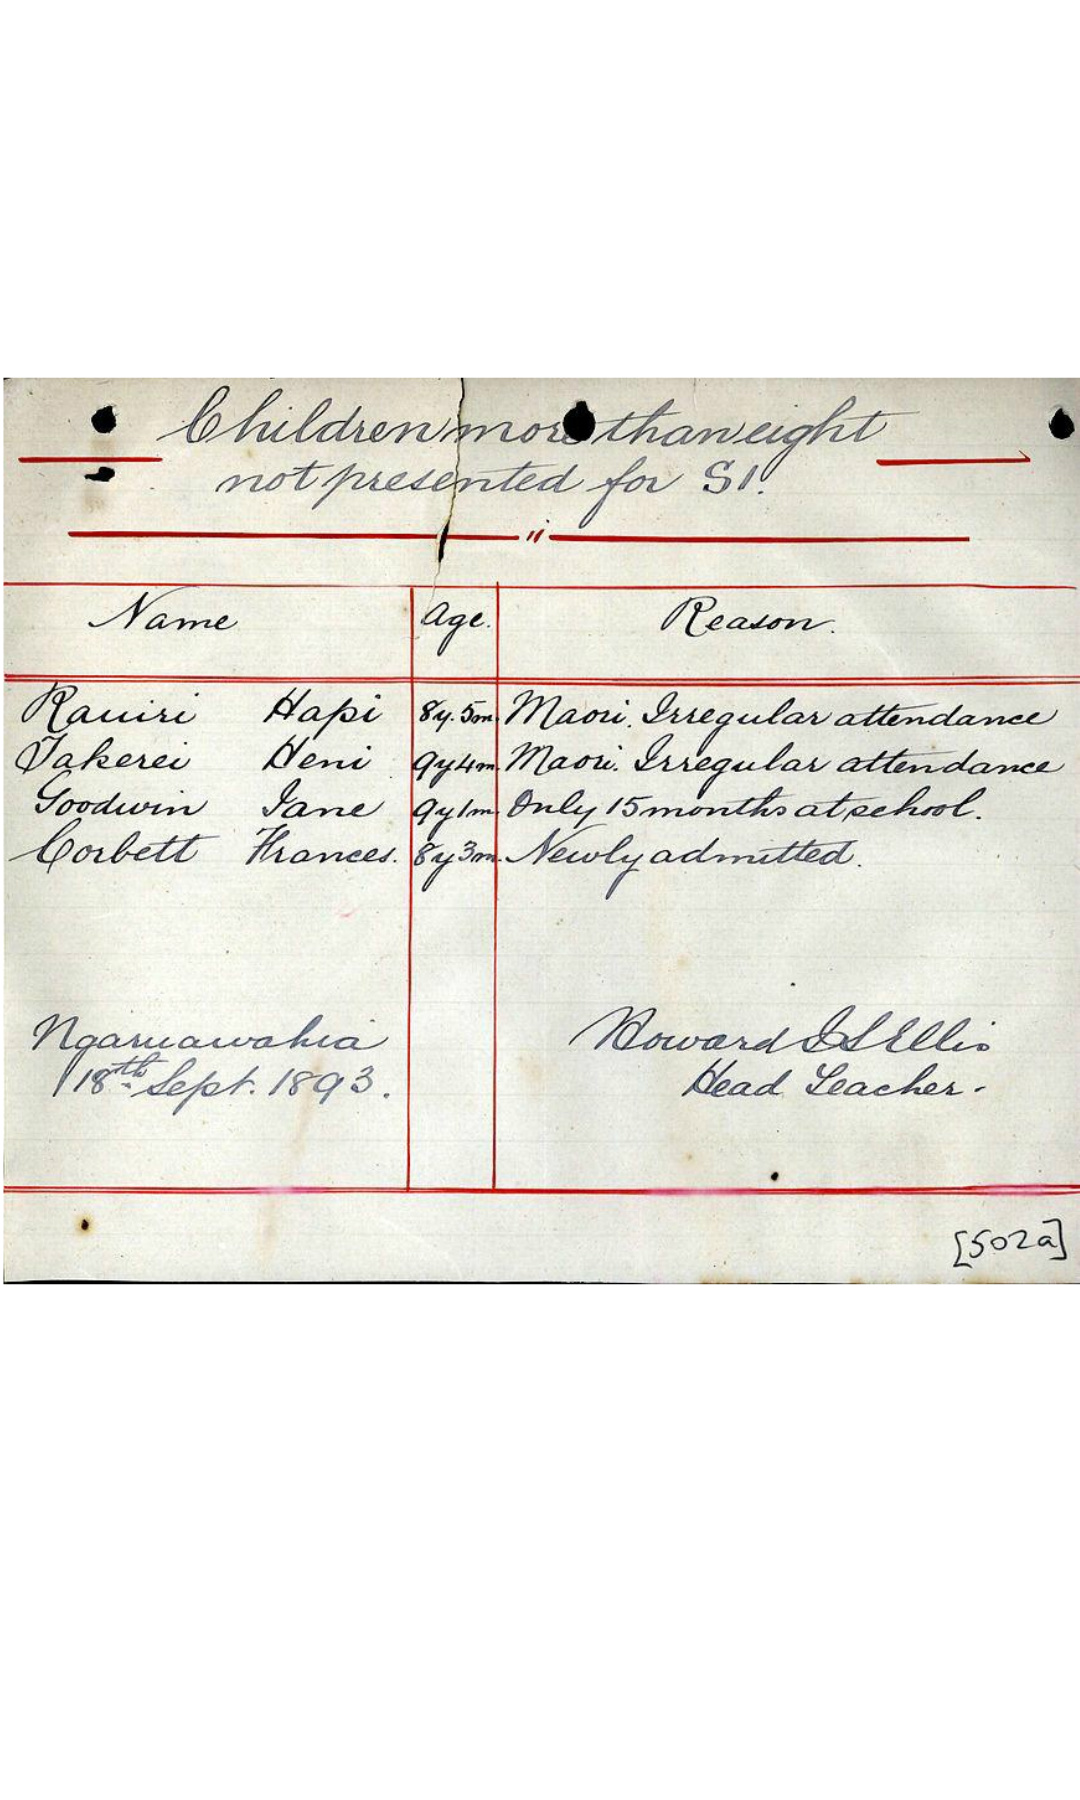 Children more than eight
not presented for S1.
Name Age. Reason.
Rauiri Hapi 8y. 5m. Maori. Irregular attendance
Takerei Heni 9y 4m. Maori. Irregular attendance
Goodwin Jane 9y 1m. Only 15 months at school.
Corbett Frances. 8y 3m. Newly admitted.
Ngaruawahia Howard I S Ellis
18th Sept. 1893. Head Teacher.
[502a]